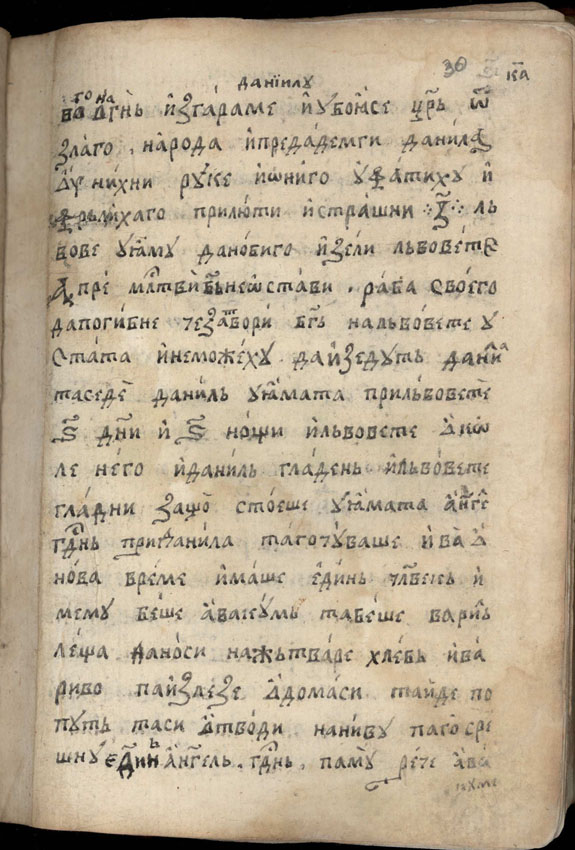 30 к҃а
данїилу
того на
ва ѻгнь и́зга́раме и́убоӕ́се цр҃ь ѿ
злаго , на́рода и́преда́демги дани́ла
ни́хни ру́ке ио́ни́го уфа́тиху и́
фрьли́хаго прилю́ти и́стра́шни ·:· з҃ ·:· ль
вове у ӕму дано́биго и́зели льво́вет
а пре мл҃тви бж҃е не ѿста́ви , ра́ба своего
дапоги́бне те затвори́ бг҃ь на льво́вете у
ста́та и́немо́жеху да и́зеду́ть дани́ла
таседе́ дани́ль у ӕ́мата прильво́вете
ѕ҃ дн҃и и́ ѕ҃ но́щи и́льво́вете ѻ́коло
ле не́го и́дани́ль гла́день и́льво́вете
гла́дни защо́ сто́еше у ӕ́мата а́нг҃ель
гд҃нь при дани́ла таго чу́ваше и́ ва ѻ́
но́ва вре́ме и́маше е́ди́нь чл҃векь и́
и́мему бе́ше а́ваку́мь табе́ше вари́ль
ле́ща да но́си на же́тваре хле́бь и́ва
риво па и́зле́зе ѻ́ дома́си та и́де по
путь таси ѻ́тво́ди нани́ву паго сре́
шну еди́нь а́нг҃ель , гд҃нь , па му ре́че а́ва